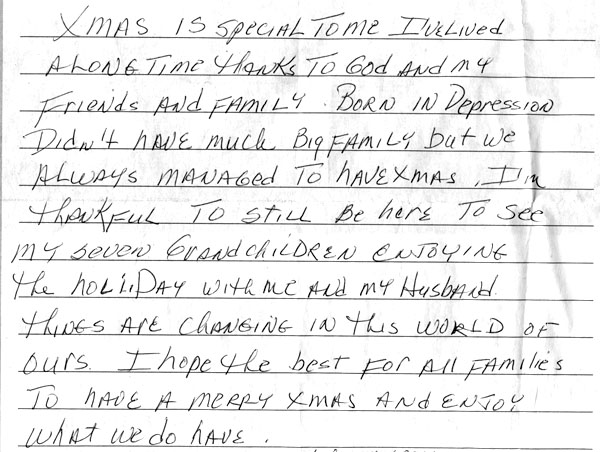 XMAS IS SPECIAL TO ME I'VE LIVED
A LONG TIME thANKS TO GOD AND MY
FRIENDS AND FAMILY. BORN IN Depression
DIDN'T HAVE much BIG FAMILY but we
ALWAYS MANAGED TO HAVE XMAS. I'm
thANKFUL TO STILL Be heRe TO See
MY seven GRANDchILDREN ENJOYING
the hOLLIDAY WITH ME AND MY HusbAND.
thINGS ARE CHANGING IN thIS WORLD OF
OURS. I hope the best FOR All FAMILIES
TO HAVE A MERRY XMAS AND ENJOY
WHAT We do HAVE.